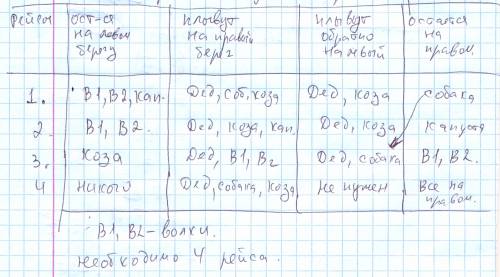 Рейсы ост-ся плывут плывут остаётся
на левом на правый обратно на
берегу берег на левый правом.
1. В1, В2, кап. Дед, соб., коза Дед, коза собака
2. В1, В2. Дед, коза, кап. Дед, коза капуста
3. коза Дед, В1, В2 Дед, собака В1, В2.
4 никого Дед, собака, коза Не нужен Все на
правом.
В1, В2 - волки.
Необходимо 4 рейса.